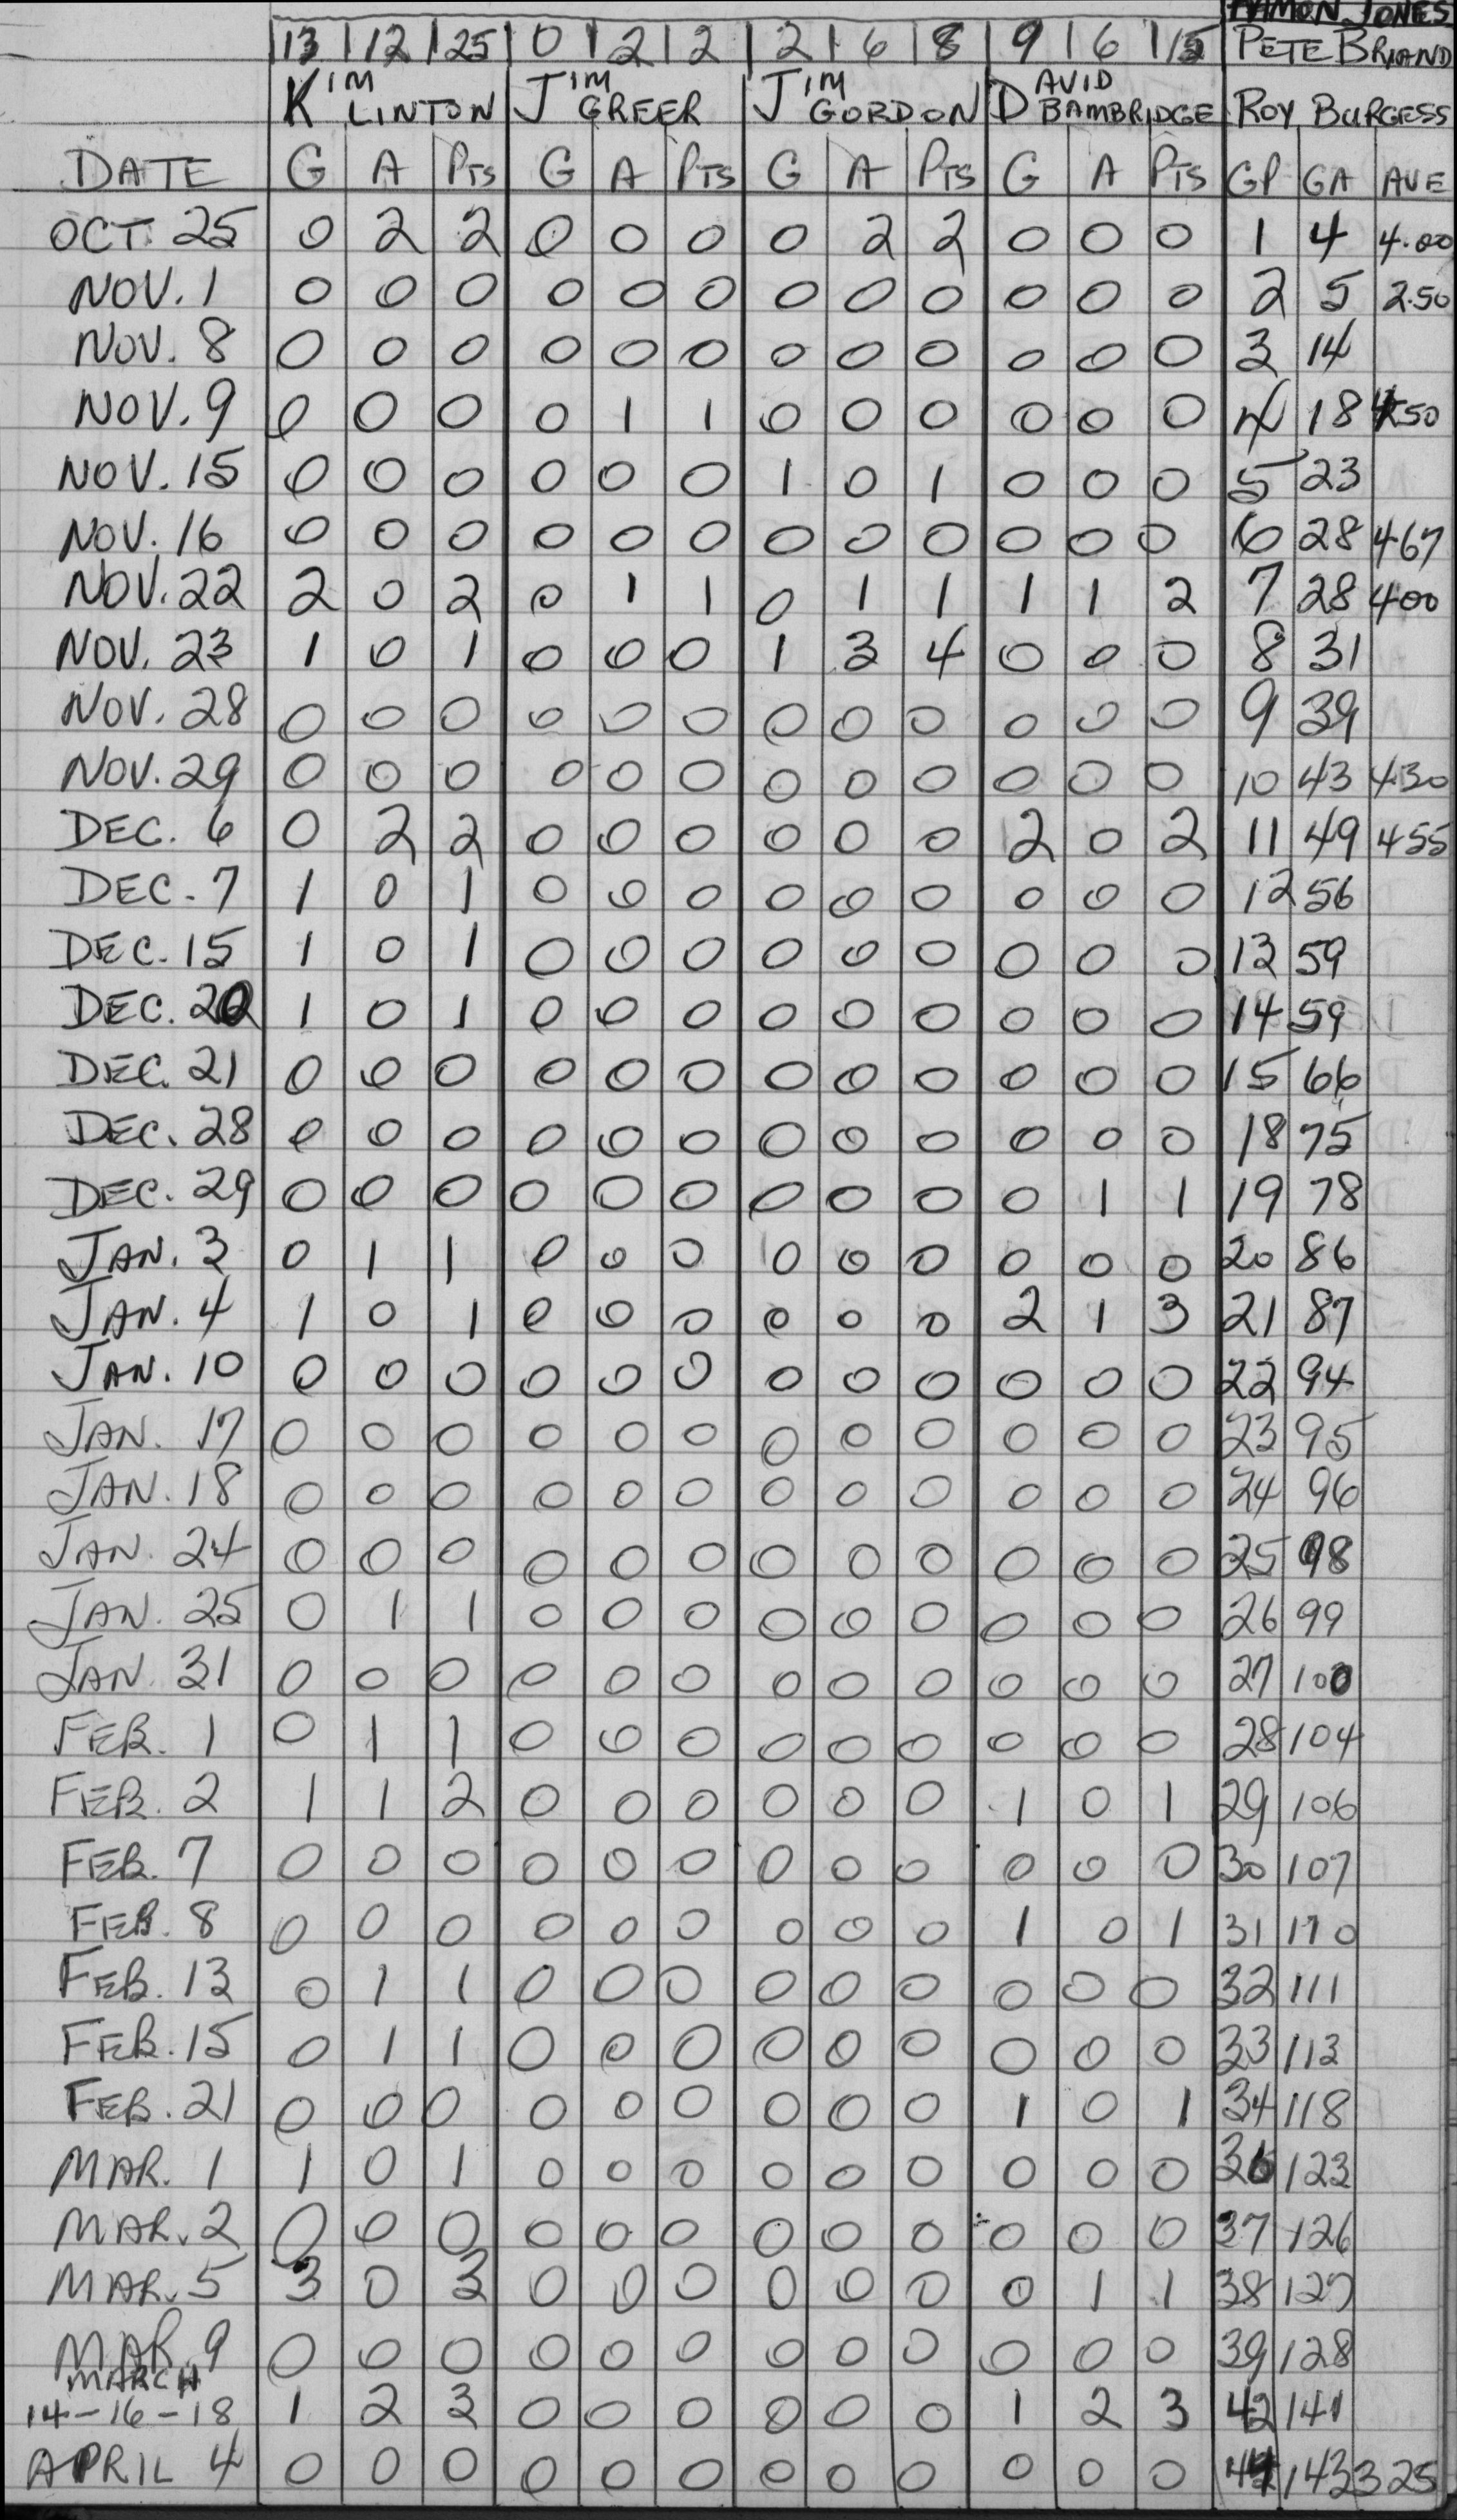 RAMON JONES
13 12 25 0 2 2 2 6 8 9 6 15 PETE BRIAND
KIM LINTON JIM GREER JIM GORDON DAVID BAMBRIDGE ROY BURGESS
DATE G A PTS G A PTS G A PTS G A PTS GP GA AVE
OCT. 25 0 2 2 0 0 0 0 2 2 0 0 0 1 4 4.00
NOV. 1 0 0 0 0 0 0 0 0 0 0 0 0 2 5 2.50
NOV. 8 0 0 0 0 0 0 0 0 0 0 0 0 3 14
NOV. 9 0 0 0 0 1 1 0 0 0 0 0 0 4 18 4.50
NOV. 15 0 0 0 0 0 0 1 0 1 0 0 0 5 23
NOV. 16 0 0 0 0 0 0 0 0 0 0 0 0 6 28 4 67
NOV. 22 2 0 2 0 1 1 0 1 1 1 1 2 7 28 4 00
NOV. 23 1 0 1 0 0 0 1 3 4 0 0 0 8 31
NOV. 28 0 0 0 0 0 0 0 0 0 0 0 0 9 39
NOV. 29 0 0 0 0 0 0 0 0 0 0 0 0 10 43 4 30
DEC. 6 0 2 2 0 0 0 0 0 0 2 0 2 11 49 4 55
DEC. 7 1 0 1 0 0 0 0 0 0 0 0 0 12 56
DEC. 15 1 0 1 0 0 0 0 0 0 0 0 0 13 59
DEC. 20 1 0 1 0 0 0 0 0 0 0 0 0 14 59
DEC. 21 0 0 0 0 0 0 0 0 0 0 0 0 15 66
DEC. 28 0 0 0 0 0 0 0 0 0 0 0 0 18 75
DEC. 29 0 0 0 0 0 0 0 0 0 0 1 1 19 78
JAN. 3 0 1 1 0 0 0 0 0 0 0 0 0 20 86
JAN. 4 1 0 1 0 0 0 0 0 0 2 1 3 21 87
JAN. 10 0 0 0 0 0 0 0 0 0 0 0 0 22 94
JAN. 17 0 0 0 0 0 0 0 0 0 0 0 0 23 95
JAN. 18 0 0 0 0 0 0 0 0 0 0 0 0 24 96
JAN. 24 0 0 0 0 0 0 0 0 0 0 0 0 25 98
JAN. 25 0 1 1 0 0 0 0 0 0 0 0 0 26 99
JAN. 31 0 0 0 0 0 0 0 0 0 0 0 0 27 100
FEB. 1 0 1 1 0 0 0 0 0 0 0 0 0 28 104
FEB. 2 1 1 2 0 0 0 0 0 0 1 0 1 29 106
FEB. 7 0 0 0 0 0 0 0 0 0 0 0 0 30 107
FEB. 8 0 0 0 0 0 0 0 0 0 1 0 1 31 110
FEB. 13 0 1 1 0 0 0 0 0 0 0 0 0 32 111
FEB. 15 0 1 1 0 0 0 0 0 0 0 0 0 33 113
FEB. 21 0 0 0 0 0 0 0 0 0 1 0 1 34 118
MAR. 1 1 0 1 0 0 0 0 0 0 0 0 0 36 123
MAR. 2 0 0 0 0 0 0 0 0 0 0 0 0 37 126
MAR. 5 3 0 3 0 0 0 0 0 0 0 1 1 38 127
MAR. 9 0 0 0 0 0 0 0 0 0 0 0 0 39 128
MARCH
14-16-18 1 2 3 0 0 0 0 0 0 1 2 3 42 141
APRIL 4 0 0 0 0 0 0 0 0 0 0 0 0 44 143 3 25